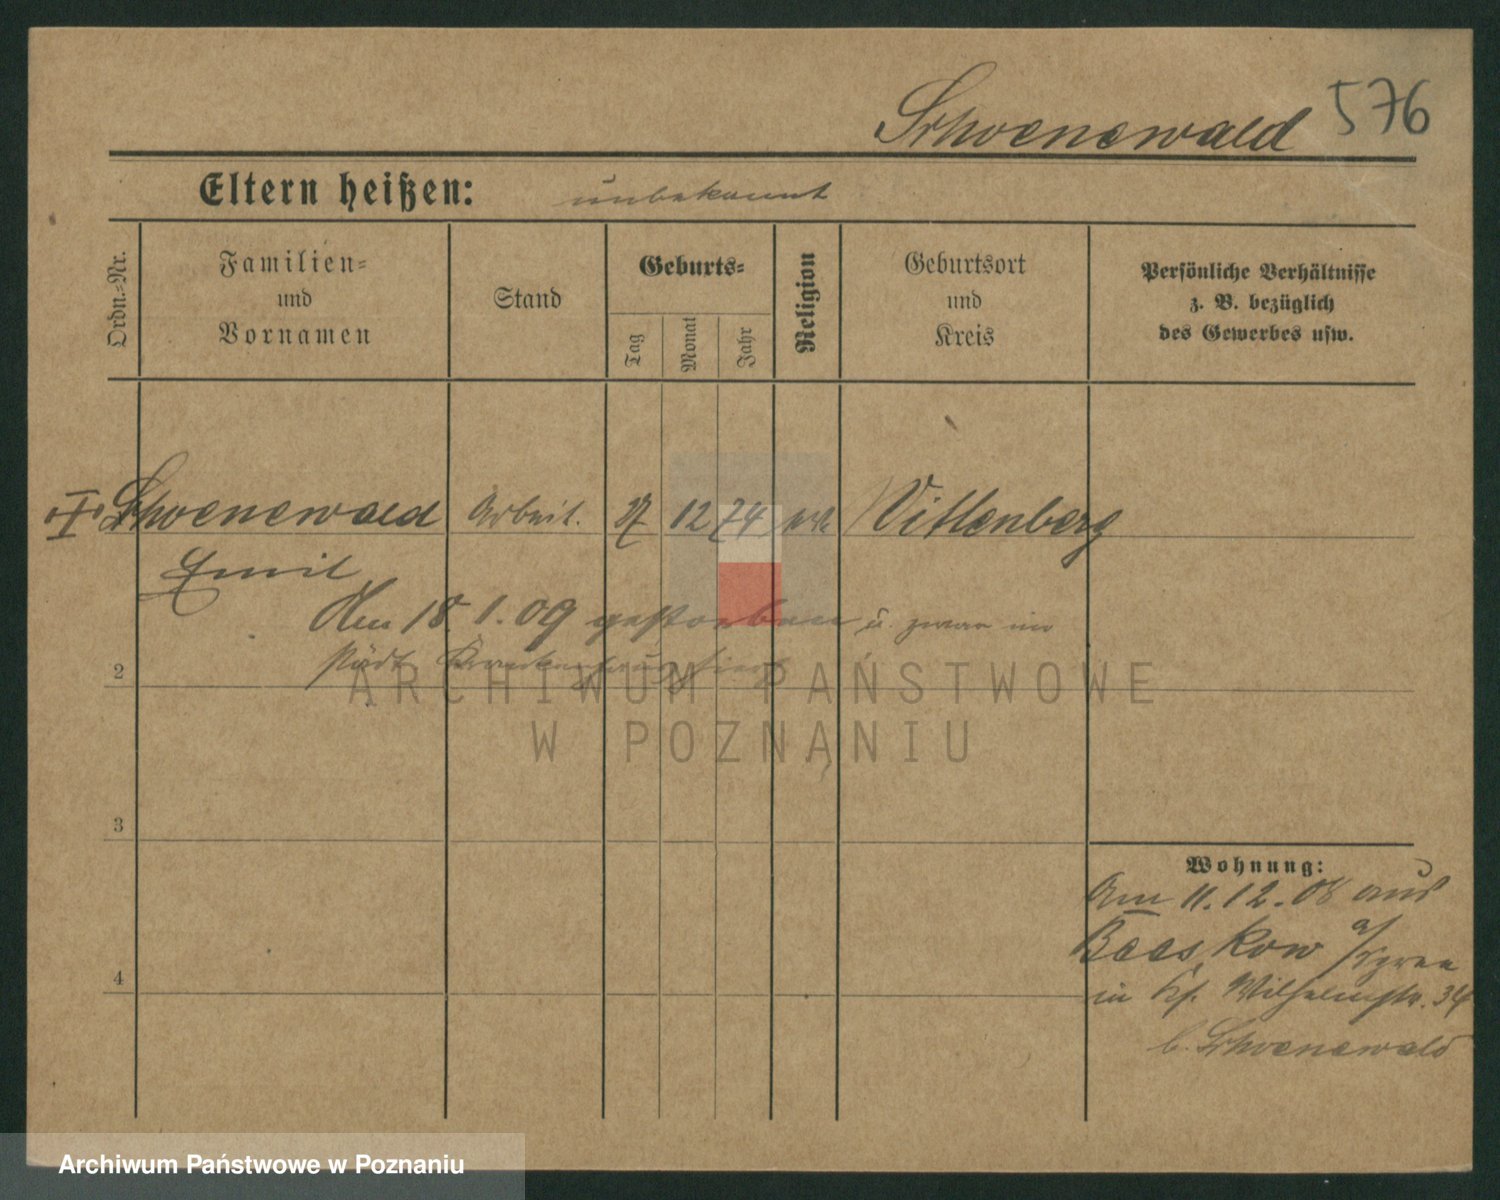 Schoenewald 576
Eltern heißen: unbekannt
Ordn.-Nr.
Familien-
und
Vornamen
Stand
Geburts-
Tag
Monat
Jahr
Religion
Geburtsort
und
Kreis
Persönliche Verhältnisse
z. B. bezüglich
des Gewerbes usw.
Schoenewald Arbeit. 27 12 74 Wittenberg
Emil
Am 18.1.09 gestorben u. zwar im
städt Krankenhaus hier
2
3
4
Wohnung:
Am 11.12.08 aus
Beeskow a/Spree
in Wilhelmstr. 34
b. Schoenewald
ARCHIWUM PAŃSTWOWE
W POZNANIU
Archiwum Państwowe w Poznaniu